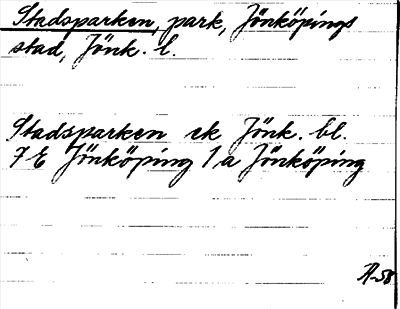 Stadsparken, park, Jönköpings
stad, Jönk. l.
Stadsparken ek Jönk. bl.
7 E Jönköping 1 a Jönköping
Ä-58